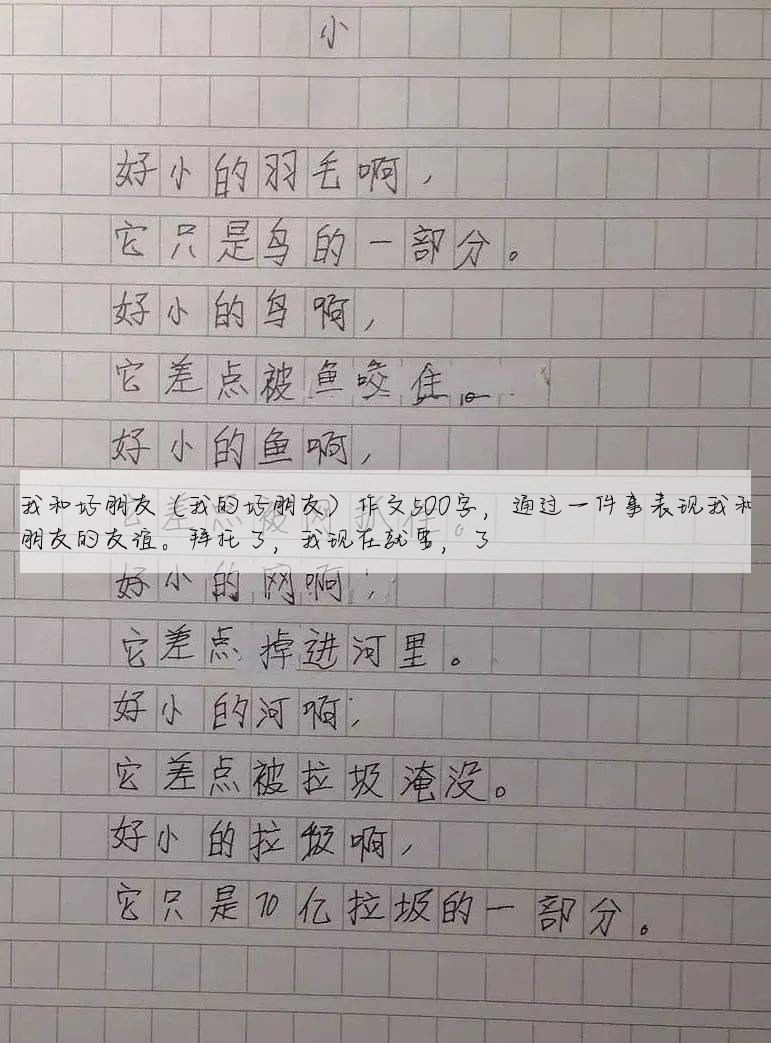 小
好小的羽毛啊，
它只是鸟的一部分。
好小的鸟啊，
它差点被鱼咬住。
好小的鱼啊，
它差点被网抓住。
我和好朋友（我的好朋友）作文500字，通过一件事表现我和
朋友的友谊。拜托了，我现在就要，了
好小的网啊，
它差点掉进河里。
好小的河啊，
它差点被垃圾淹没。
好小的垃圾啊，
它只是70亿垃圾的一部分。